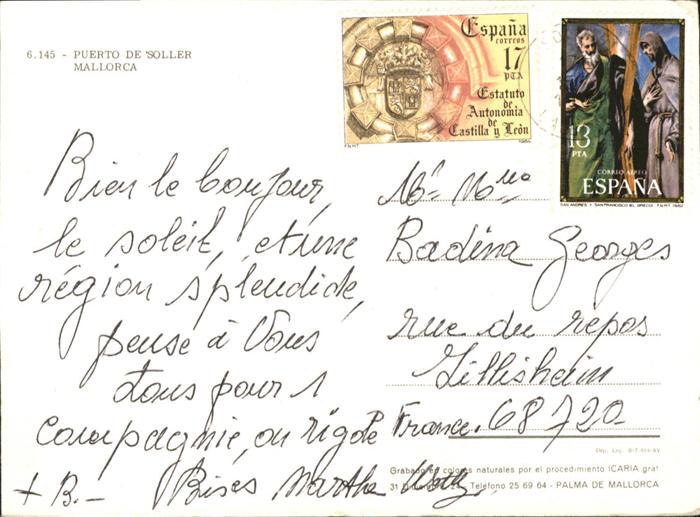 6.145 - PUERTO DE SOLLER
MALLORCA
España
correos
17
PTA
Estatuto
de
Autonomía
de
Castilla y León
F.N.M.T.
1984
13
PTA
CORREO AEREO
ESPAÑA
SAN ANDRES Y SAN FRANCISCO (EL GRECO) F.N.M.T. 1982
Bien le bonjour,
le soleil, et une
région splendide,
pense à Vous
tous pour 1
compagnie, on rigole
+ B.- Bises Martha
Badina Georges
rue du repos
Illisheim
France. 68720
Dep. Leg. B.
Grabado en colores naturales por el procedimiento ICARIA, graf
31 Teléfono 25 69 64 - PALMA DE MALLORCA